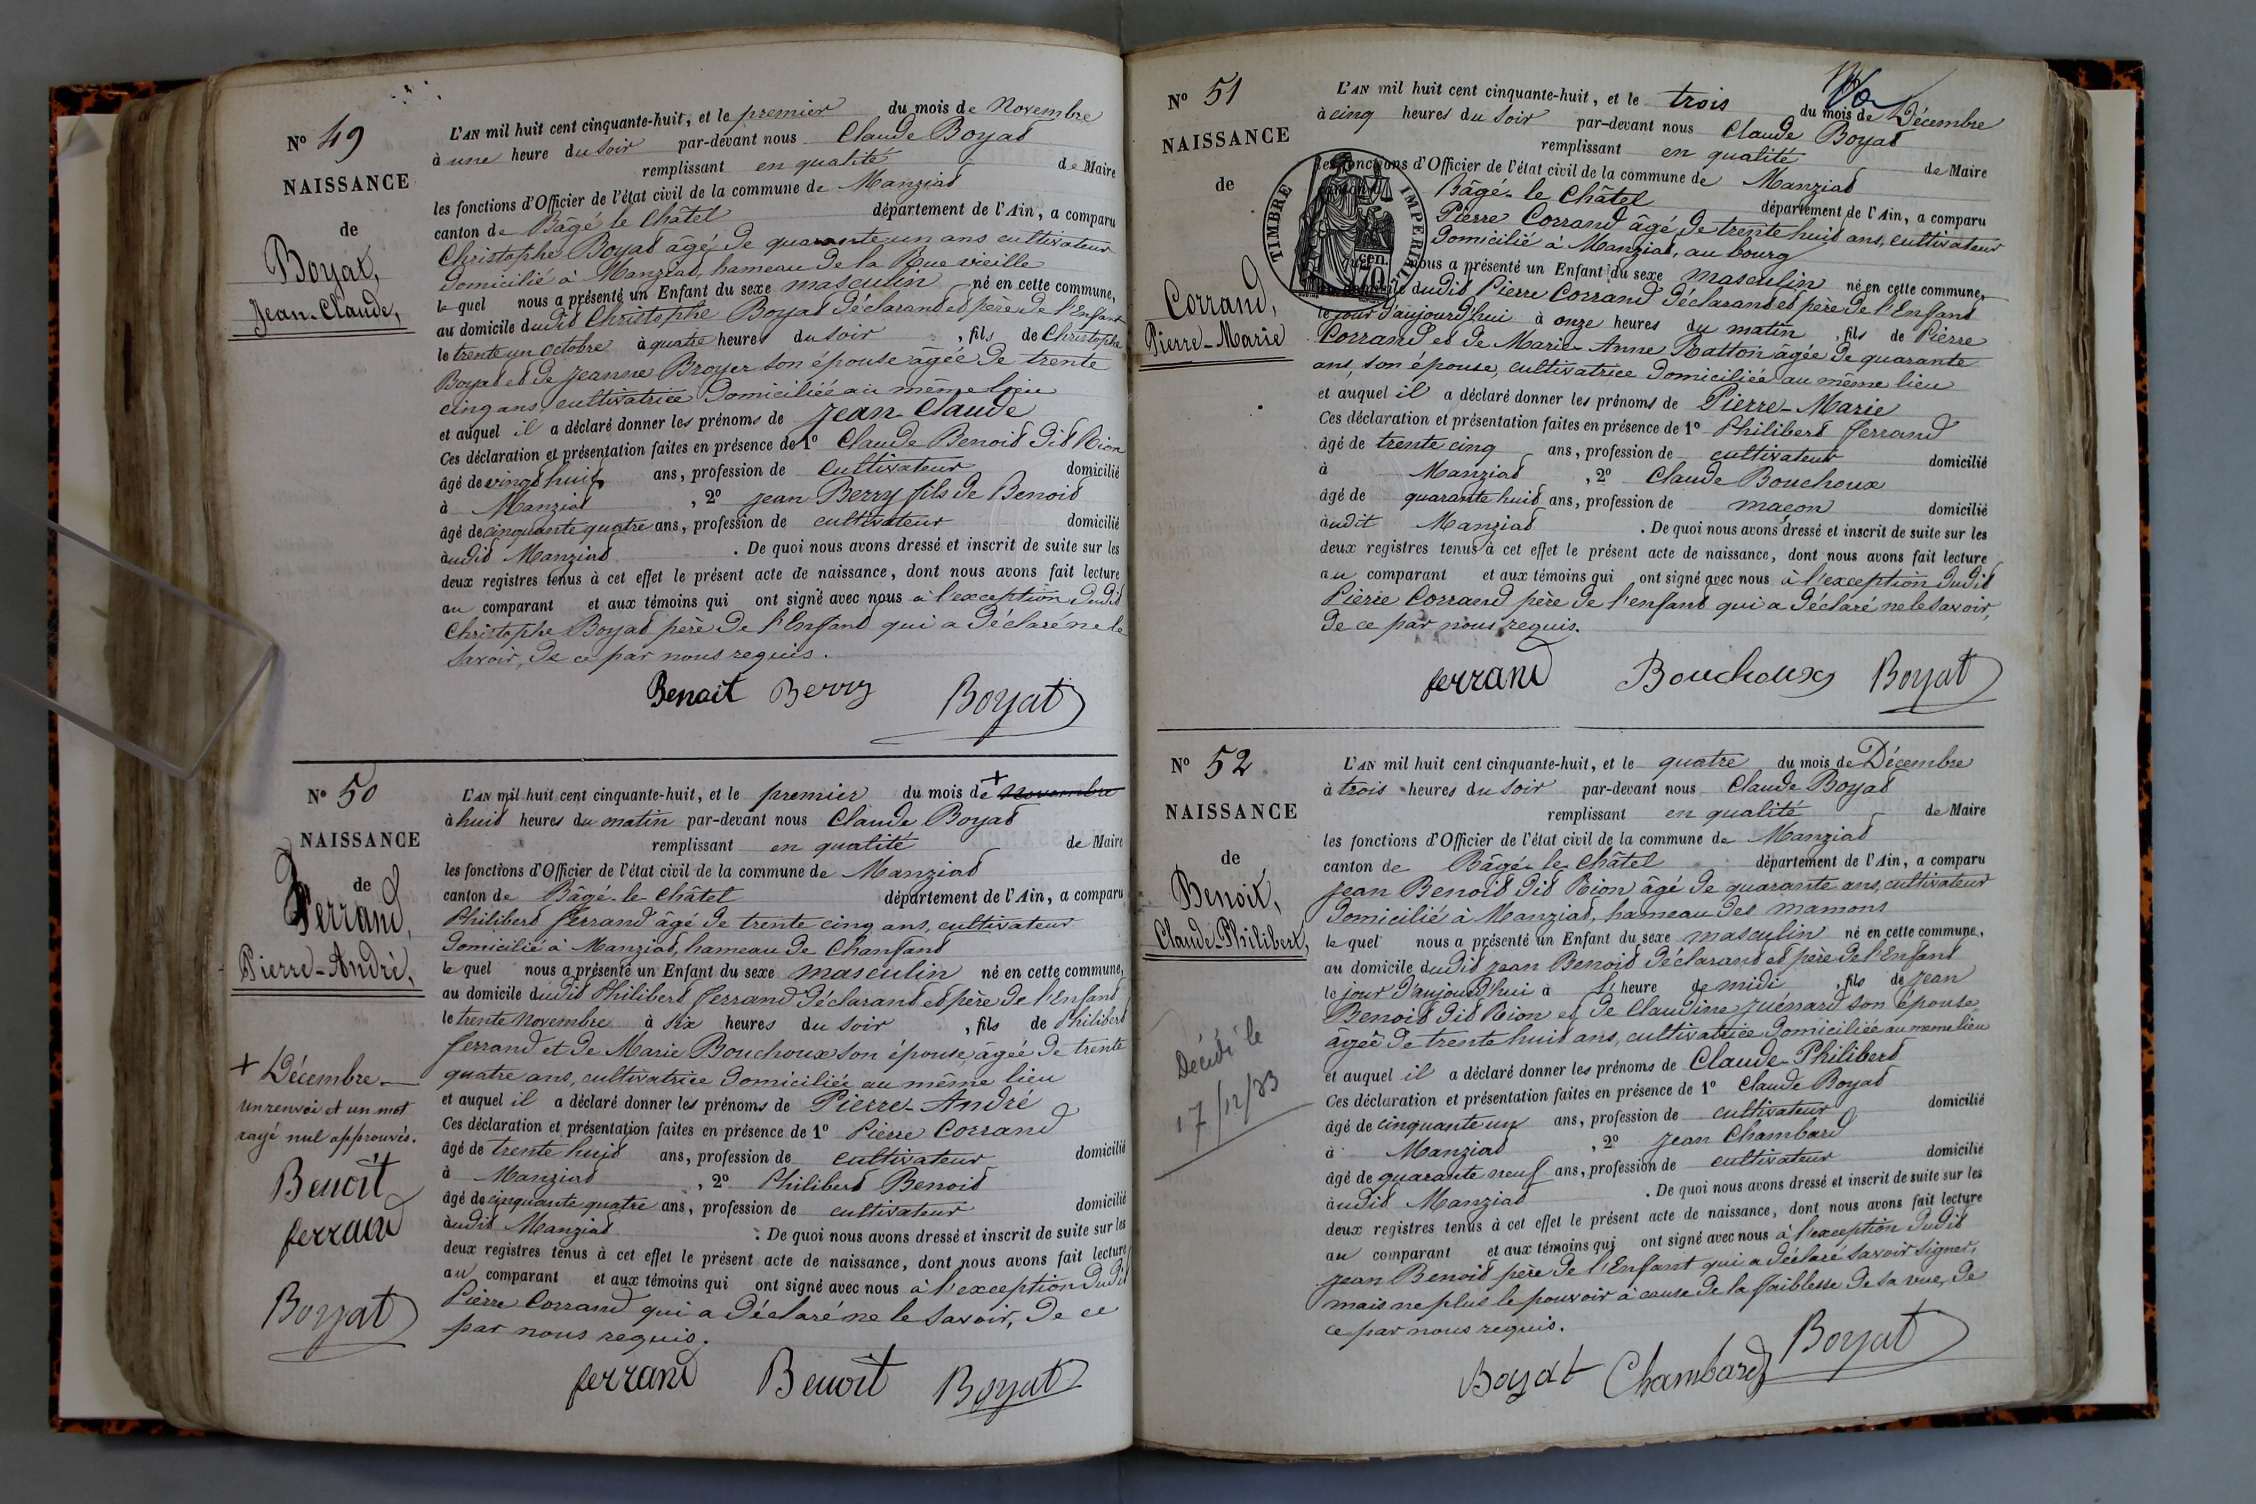 N° 49
NAISSANCE
de
Boyat,
Jean-Claude,
L'AN mil huit cent cinquante-huit, et le premier du mois de Novembre
à une heure du soir par-devant nous Claude Boyat
remplissant en qualité de Maire
les fonctions d'Officier de l'état civil de la commune de Manziat
canton de Bâgé le Châtel département de l'Ain, a comparu
Christophe Boyat âgé de quarante un ans cultivateur
domicilié à Manziat, hameau de la Rue vieille
le quel nous a présenté un Enfant du sexe masculin né en cette commune,
au domicile dudit Christophe Boyat déclarant et père de l'Enfant
le trente un octobre à quatre heures du soir, fils de Christophe
Boyat et de Jeanne Broyer son épouse âgée de trente
cinq ans, cultivatrice domiciliée au même lieu
et auquel il a déclaré donner les prénoms de Jean Claude
Ces déclaration et présentation faites en présence de 1° Claude Benoit dit Rion
âgé de vingt huit ans, profession de cultivateur domicilié
à Manziat, 2° Jean Berry fils de Benoit
âgé de cinquante quatre ans, profession de cultivateur domicilié
àudit Manziat. De quoi nous avons dressé et inscrit de suite sur les
deux registres tenus à cet effet le présent acte de naissance, dont nous avons fait lecture
au comparant et aux témoins qui ont signé avec nous à l'exception dudit
Christophe Boyat père de l'Enfant qui a déclaré ne le
savoir, de ce par nous requis.
Benoit Berry Boyat
N° 50
NAISSANCE
de
Ferrand,
Pierre-André,
+ Décembre
un renvoi et un mot
rayé nul approuvés.
Benoît
ferrand
Boyat
L'AN mil huit cent cinquante-huit, et le premier du mois de + Novembre
à huit heures du matin par-devant nous Claude Boyat
remplissant en qualité de Maire
les fonctions d'Officier de l'état civil de la commune de Manziat
canton de Bâgé-le-Châtel département de l'Ain, a comparu
Philibert ferrand âgé de trente cinq ans, cultivateur
domicilié à Manziat, hameau de Chanfant
le quel nous a présenté un Enfant du sexe masculin né en cette commune,
au domicile dudit Philibert ferrand déclarant et père de l'Enfant
le trente Novembre à six heures du soir, fils de Philibert
ferrand et de Marie Bouchoux son épouse, âgée de trente
quatre ans, cultivatrice domiciliée au même lieu
et auquel il a déclaré donner les prénoms de Pierre-André
Ces déclaration et présentation faites en présence de 1° Pierre Corrand
âgé de trente huit ans, profession de cultivateur domicilié
à Manziat, 2° Philibert Benoit
âgé de cinquante quatre ans, profession de cultivateur domicilié
àudit Manziat. De quoi nous avons dressé et inscrit de suite sur les
deux registres tenus à cet effet le présent acte de naissance, dont nous avons fait lecture
au comparant et aux témoins qui ont signé avec nous à l'exception dudit
Pierre Corrand qui a déclaré ne le savoir, de ce
par nous requis.
ferrand Benoît Boyat
N° 51
NAISSANCE
de
Corrand,
Pierre-Marie
TIMBRE IMPERIAL
L'AN mil huit cent cinquante-huit, et le trois du mois de Décembre
à cinq heures du soir par-devant nous Claude Boyat
remplissant en qualité de Maire
les fonctions d'Officier de l'état civil de la commune de Manziat
Bâgé-le Châtel département de l'Ain, a comparu
Pierre Corrand âgé de trente huit ans, cultivateur
domicilié à Manziat, au bourg
nous a présenté un Enfant du sexe masculin né en cette commune,
dudit Pierre Corrand déclarant et père de l'Enfant
le jour d'aujourd'hui à onze heures du matin, fils de Pierre
Corrand et de Marie-Anne Ratton âgée de quarante
ans, son épouse, cultivatrice domiciliée au même lieu
et auquel il a déclaré donner les prénoms de Pierre-Marie
Ces déclaration et présentation faites en présence de 1° Philibert ferrand
âgé de trente cinq ans, profession de cultivateur domicilié
à Manziat, 2° Claude Bouchoux
âgé de quarante huit ans, profession de maçon domicilié
àudit Manziat. De quoi nous avons dressé et inscrit de suite sur les
deux registres tenus à cet effet le présent acte de naissance, dont nous avons fait lecture
au comparant et aux témoins qui ont signé avec nous à l'exception dudit
Pierre Corrand père de l'enfant qui a déclaré ne le savoir,
de ce par nous requis.
ferrand Bouchoux Boyat
N° 52
NAISSANCE
de
Benoit,
Claude-Philibert,
Décédé le
17/12/33
L'AN mil huit cent cinquante-huit, et le quatre du mois de Décembre
à trois heures du soir par-devant nous Claude Boyat
remplissant en qualité de Maire
les fonctions d'Officier de l'état civil de la commune de Manziat
canton de Bâgé-le-Châtel département de l'Ain, a comparu
Jean Benoit dit Rion âgé de quarante ans, cultivateur
domicilié à Manziat, hameau des mamons
le quel nous a présenté un Enfant du sexe masculin né en cette commune,
au domicile dudit Jean Benoit déclarant et père de l'Enfant
le jour d'aujourd'hui à l'heure de midi, fils de Jean
Benoit dit Rion et de Claudine Juénard son épouse
âgée de trente huit ans, cultivatrice domiciliée au même lieu
et auquel il a déclaré donner les prénoms de Claude-Philibert
Ces déclaration et présentation faites en présence de 1° Claude Boyat
âgé de cinquante un ans, profession de cultivateur domicilié
à Manziat, 2° Jean Chambard
âgé de quarante neuf ans, profession de cultivateur domicilié
àudit Manziat. De quoi nous avons dressé et inscrit de suite sur les
deux registres tenus à cet effet le présent acte de naissance, dont nous avons fait lecture
au comparant et aux témoins qui ont signé avec nous à l'exception dudit
Jean Benoit père de l'Enfant qui a déclaré savoir signer,
mais ne plus le pouvoir à cause de la faiblesse de sa vue, de
ce par nous requis.
Boyat Chambard Boyat